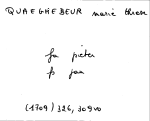 QUAEGHEBEUR marie therese
fa pieter
fs jan
(1709) 326, 309vo